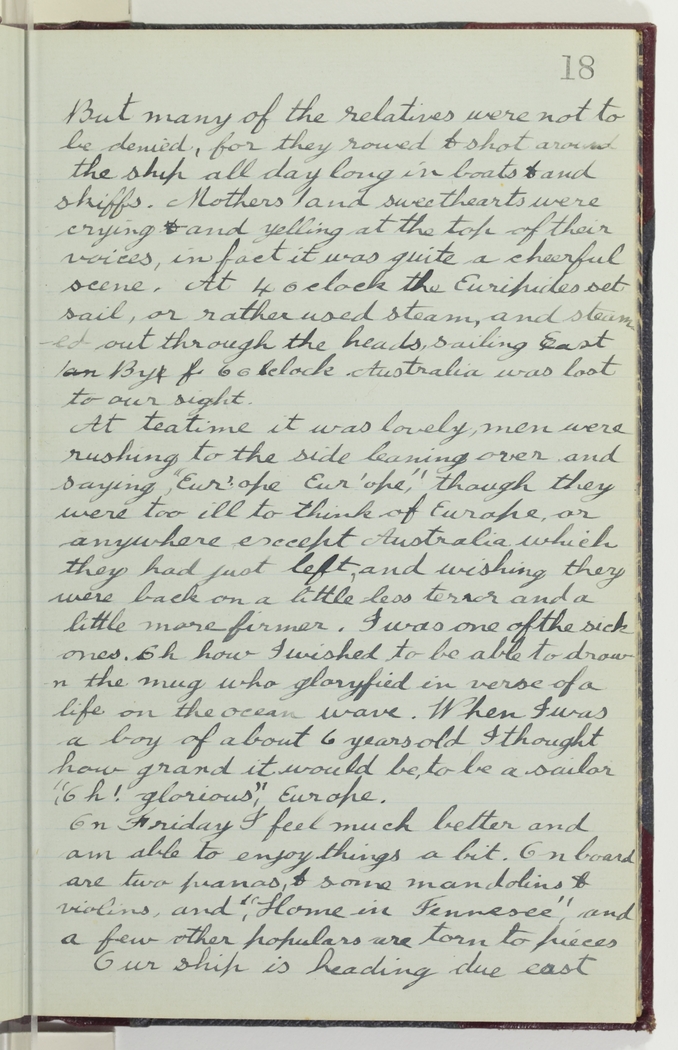 18
But many of the relatives were not to
be denied, for they rowed & shot around
the ship all day long in boats & and
skiffs. Mothers and sweethearts were
crying & and yelling at the top of their
voices, in fact it was quite a cheerful
scene. At 4 oclock the Euripides set
sail, or rather used steam, and steam
-ed out through the heads, sailing East
an By 6 oclock Australia was lost
to our sight.
At teatime it was lovely, men were
rushing to the side leaning over and
saying, "Eur'ope Eur'ope," though they
were too ill to think of Europe, or
anywhere except Australia which
they had just left, and wishing they
were back on a little less terror and a
little more firmer. I was one of the sick
ones. Oh how I wished to be able to drow
n the mug who gloryfied in verse of a
life on the ocean wave. When I was
a boy of about 6 years old I thought
how grand it would be, to be a sailor
"Oh! glorious", Europe.
On Friday I feel much better and
am able to enjoy things a bit. On board
are two pianas, & some mandolins &
violins, and "Home in Tennesee", and
a few other populars are torn to pieces
Our ship is heading due east